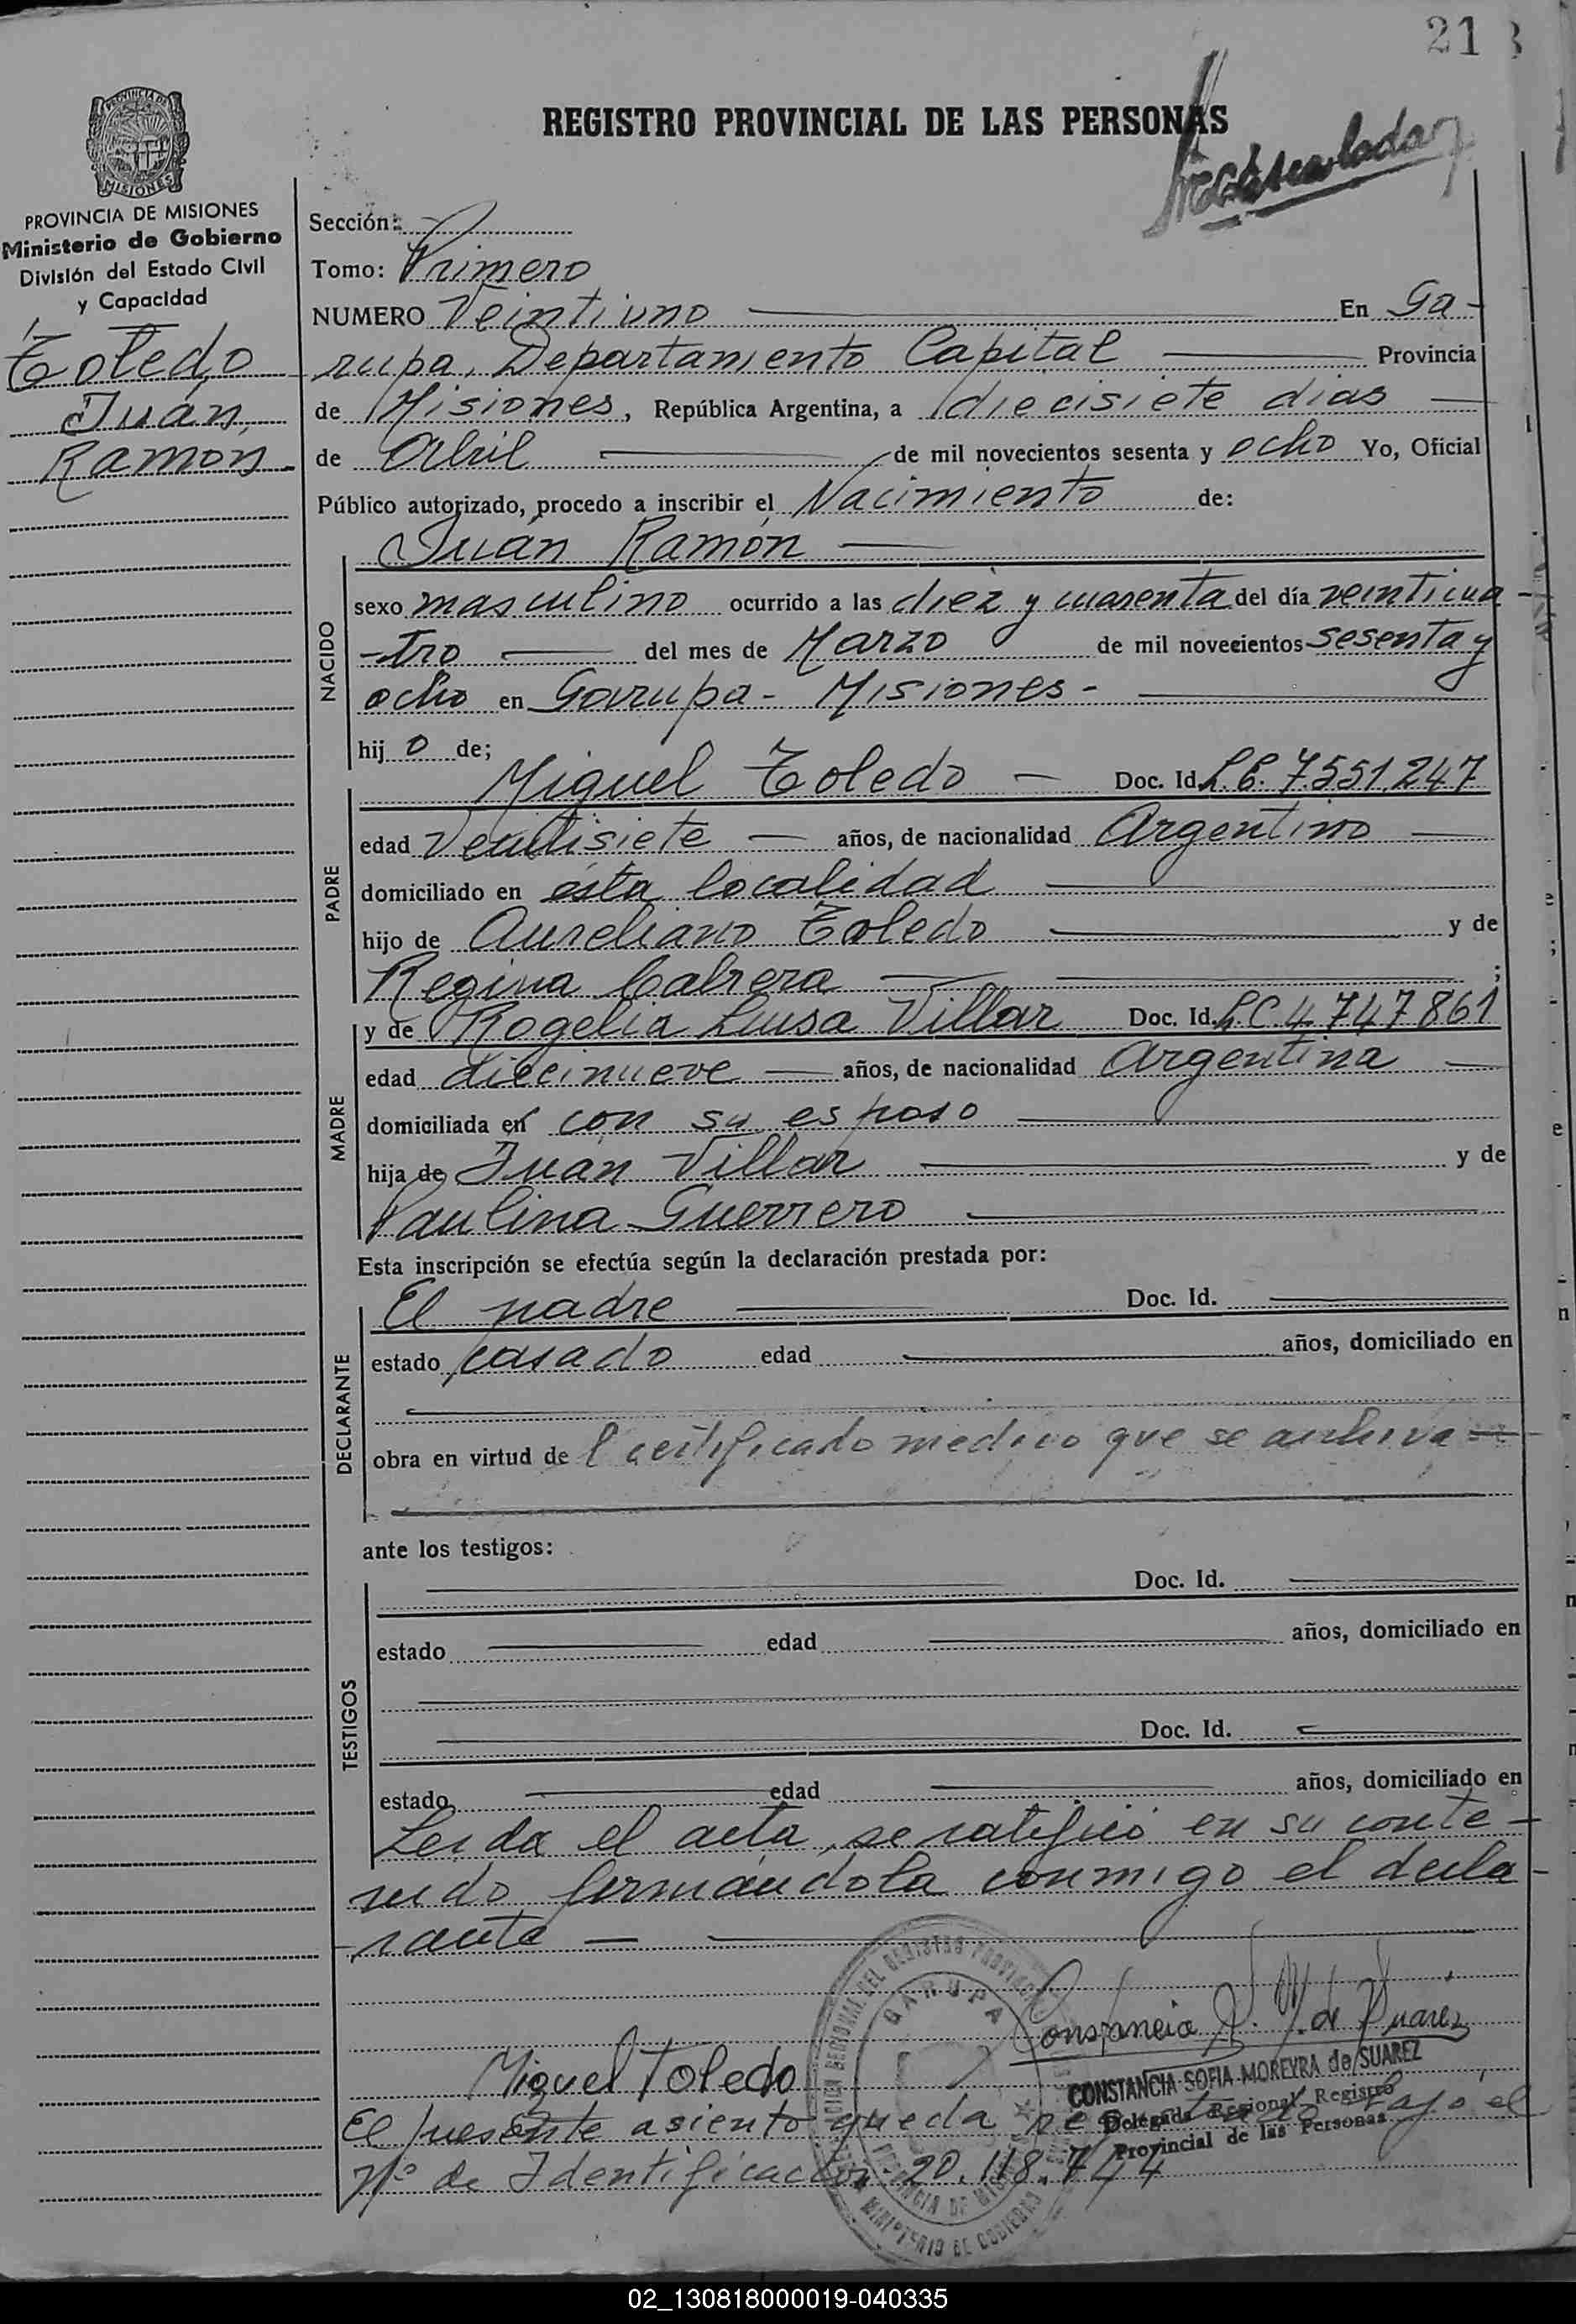 21
REGISTRO PROVINCIAL DE LAS PERSONAS
PROVINCIA DE
MISIONES
PROVINCIA DE MISIONES
Ministerio de Gobierno
División del Estado Civil
y Capacidad
Toledo
Juán,
Ramon.
Sección:
Tomo: Primero
NUMERO Veintiuno En Ga-
rupa, Departamento Capital Provincia
de Misiones, República Argentina, a diecisiete dias
de Abril de mil novecientos sesenta y ocho Yo, Oficial
Público autorizado, procedo a inscribir el Nacimiento de:
Juán Ramón
NACIDO
sexo masculino ocurrido a las diez y cuarenta del día veinticua-
-tro del mes de Marzo de mil novecientos sesenta y
ocho en Garupa- Misiones-
hij o de;
PADRE
Miguel Toledo Doc. Id. L.E. 7.551.247
edad Veintisiete años, de nacionalidad Argentino
domiciliado en ésta localidad
hijo de Aureliano Toledo y de
Regina Cabrera ;
MADRE
y de Rogelia Luisa Villar Doc. Id. L.C 4.747861
edad diecinueve años, de nacionalidad Argentina
domiciliada en con su esposo
hija de Juán Villar y de
Paulina Guerrero
Esta inscripción se efectúa según la declaración prestada por:
DECLARANTE
El padre Doc. Id.
estado casado edad años, domiciliado en
obra en virtud de l certificado medico que se archiva
ante los testigos:
TESTIGOS
Doc. Id.
estado edad años, domiciliado en
Doc. Id.
estado edad años, domiciliado en
Leida el acta, se ratificó en su conte-
nido firmándola conmigo el decla-
rante
GARUPA
Constancia S. M. de Suarez
Miguel Toledo
CONSTANCIA SOFIA MOREYRA de SUAREZ
Delegada Regional Registro
Provincial de las Personas
El presente asiento queda bajo el
Nº de Identificación 20.118.744
MINISTERIO DE GOBIERNO
02_130818000019-040335